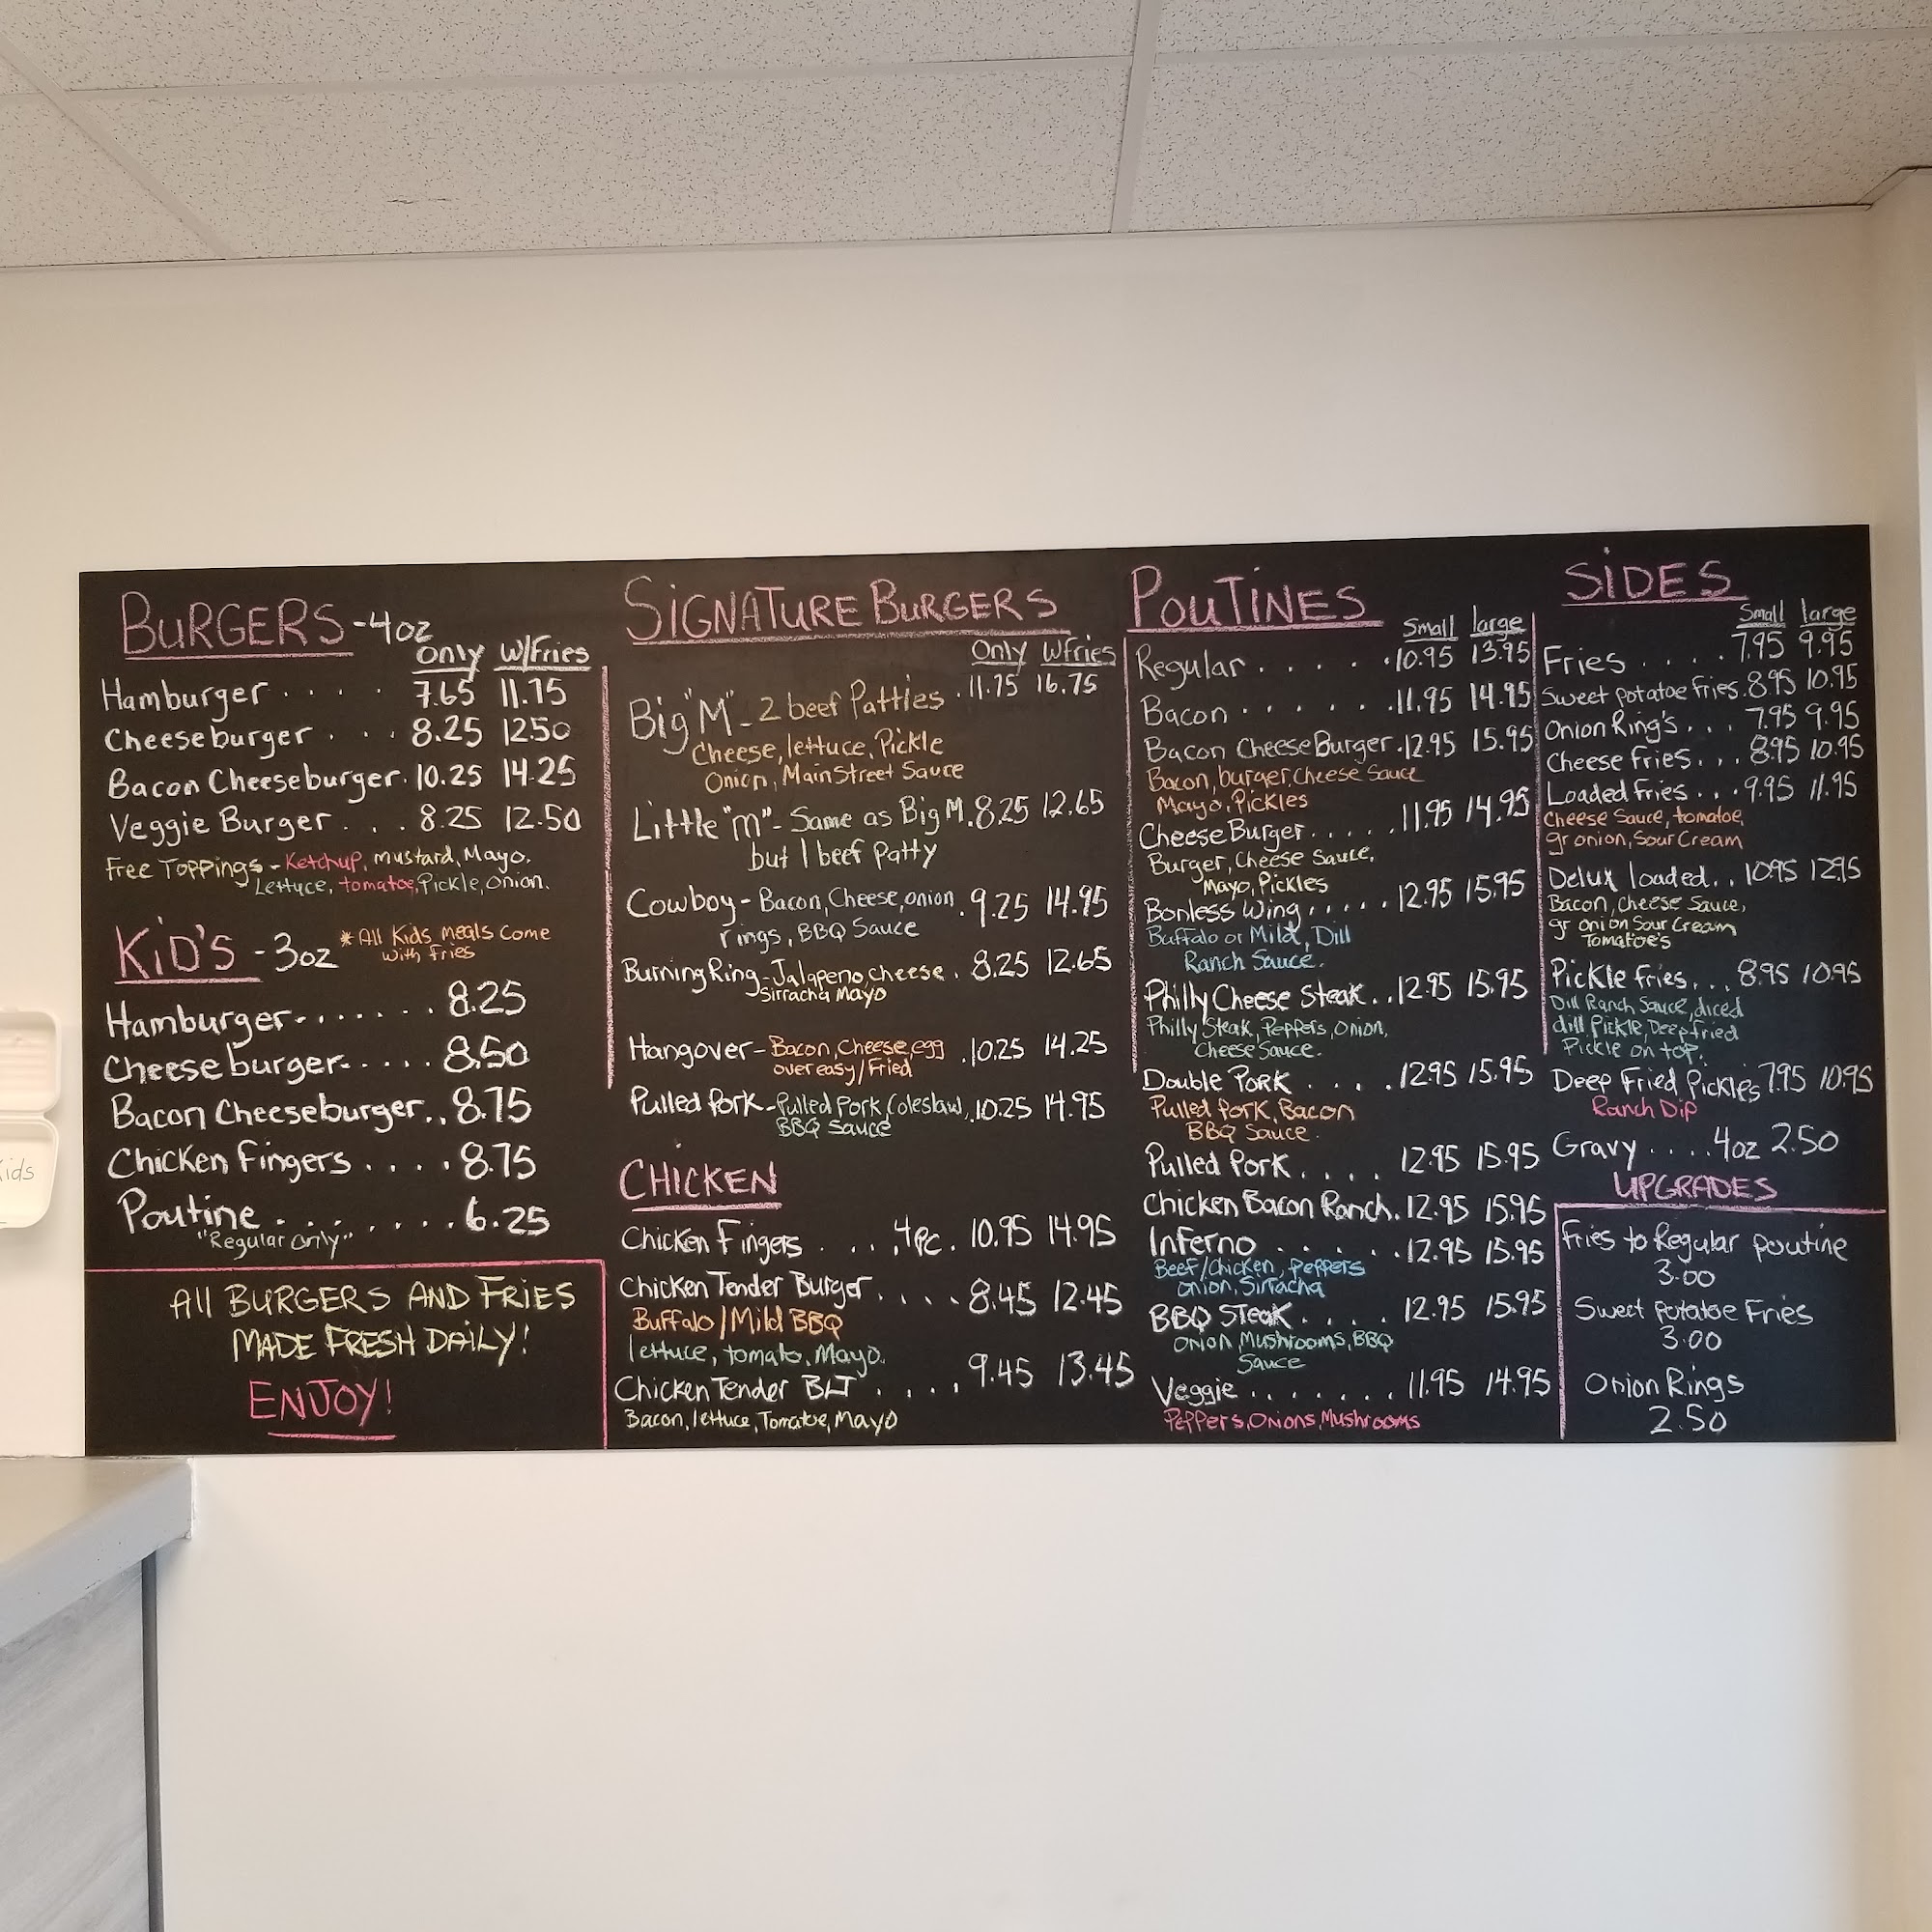 BURGERS -4oz
Only W/Fries
Hamburger . . . . 7.65 11.75
Cheeseburger . . . 8.25 12.50
Bacon Cheeseburger. 10.25 14.25
Veggie Burger . . . 8.25 12.50
Free Toppings - Ketchup, mustard, Mayo.
Lettuce, tomatoe, Pickle, Onion.
KiD'S - 3oz
* All Kids meals Come
with fries
Hamburger. . . . . . . 8.25
Cheeseburger. . . . . 8.50
Bacon Cheeseburger . . 8.75
Chicken Fingers . . . . 8.75
Poutine . . . . . . . . 6.25
"Regular Only"
All BURGERS AND FRIES
MADE FRESH DAILY!
ENJOY!
SiGNATURE BURGERS
Only W fries
Big "M" - 2 beef Patties . 11.75 16.75
Cheese, lettuce, Pickle
Onion, Main Street Sauce
Little "m" - Same as Big M. 8.25 12.65
but 1 beef Patty
Cowboy - Bacon, Cheese, onion . 9.25 14.95
rings, BBQ Sauce
Burning Ring - Jalapeno, cheese . 8.25 12.65
Sirracha Mayo
Hangover - Bacon, Cheese, egg . 10.25 14.25
over easy/Fried
Pulled Pork - Pulled Pork, Coleslaw, 10.25 14.95
BBQ Sauce
CHICKEN
Chicken Fingers . . . . 4pc . 10.95 14.95
Chicken Tender Burger . . . . 8.45 12.45
Buffalo / Mild BBQ
lettuce, tomato, Mayo.
Chicken Tender BLT . . . . 9.45 13.45
Bacon, lettuce, Tomatoe, Mayo
POUTINES
Small large
Regular . . . . . . 10.95 13.95
Bacon . . . . . . . 11.95 14.95
Bacon Cheese Burger . 12.95 15.95
Bacon, burger, Cheese Sauce
Mayo, Pickles
Cheese Burger . . . . . . 11.95 14.95
Burger, Cheese Sauce,
Mayo, Pickles
Bonless Wing . . . . . 12.95 15.95
Buffalo or Mild, Dill
Ranch Sauce.
Philly Cheese Steak . . 12.95 15.95
Philly Steak, Peppers, Onion,
Cheese Sauce.
Double Pork . . . . 12.95 15.95
Pulled Pork, Bacon
BBQ Sauce.
Pulled Pork . . . . 12.95 15.95
Chicken Bacon Ranch. 12.95 15.95
Inferno . . . . . . 12.95 15.95
Beef/Chicken, Peppers
onion, Sirracha
BBQ Steak . . . . 12.95 15.95
Onion, Mushrooms, BBQ
Sauce
Veggie . . . . . . . 11.95 14.95
Peppers, Onions, Mushrooms
SiDES
Small large
Fries . . . . . 7.95 9.95
Sweet potatoe fries. 8.95 10.95
Onion Ring's . . . 7.95 9.95
Cheese Fries . . . 8.95 10.95
Loaded fries . . . 9.95 11.95
Cheese Sauce, tomatoe,
gr onion, Sour Cream
Delux loaded . . 10.95 12.95
Bacon, Cheese Sauce,
gr onion Sour Cream
Tomatoe's
Pickle fries . . . 8.95 10.95
Dill Ranch Sauce, diced
dill Pickle, Deep fried
Pickle on top.
Deep Fried Pickles 7.95 10.95
Ranch Dip
Gravy . . . . 4oz 2.50
UPGRADES
Fries to Regular poutine
3.00
Sweet Potatoe Fries
3.00
Onion Rings
2.50